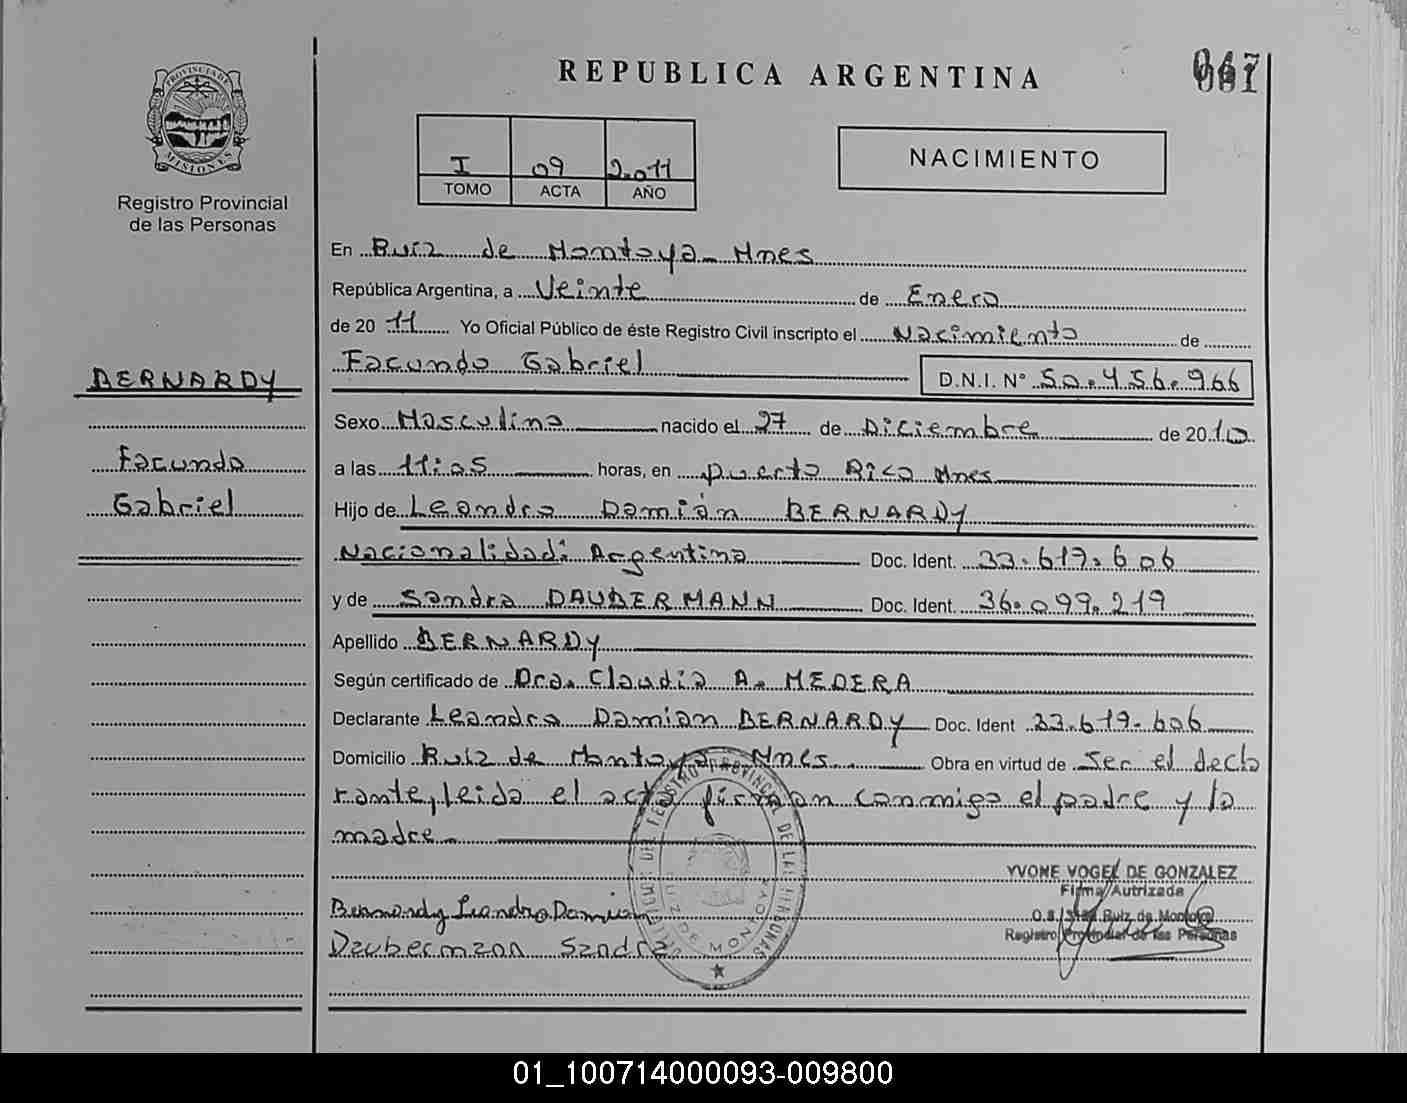 REPUBLICA ARGENTINA
PROVINCIA DE
MISIONES
Registro Provincial
de las Personas
I 09 2.011
TOMO ACTA AÑO
NACIMIENTO
En Ruiz de Montoya Mnes
República Argentina, a Veinte de Enero
de 20 11 Yo Oficial Público de éste Registro Civil inscripto el Nacimiento de
Facundo Gabriel D.N.I. N° 50.456.966
BERNARDY
Facundo
Gabriel
Sexo Masculino nacido el 27 de Diciembre de 2010
a las 11:05 horas, en Puerto Rico Mnes
Hijo de Leandro Damián BERNARDY
Nacionalidad: Argentina Doc. Ident. 33.619.606
y de Sandra DAUBERMANN Doc. Ident. 36.099.219
Apellido BERNARDY
Según certificado de Dra. Claudia A. MEDERA
Declarante Leandro Damian BERNARDY Doc. Ident 33.619.606
Domicilio Ruiz de Montoya Mnes. Obra en virtud de Ser el decla
rante, leida el acta firman conmigo el padre y la
madre
YVONE VOGEL DE GONZALEZ
Firma Autrizada
Ruiz de Montoya
Registro Provincial de las Personas
Bernardy Leandro Damian
Daubermann Sandra
RUIZ DE MONTOYA
01_100714000093-009800